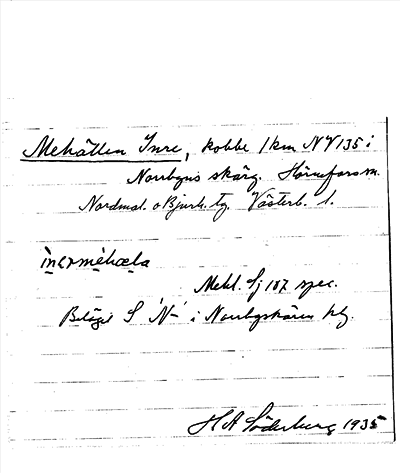 Mehällen Inre, kobbe 1 km NV 135 i
Norrbyns skärg. Hörnefors sn.
Nordmal. o Bjurh. tg. Västerb. l.
ìnərméhæla
Medd. Sj 187 spec.
Beläget S i Norrbyskären
H A Söderberg 1935